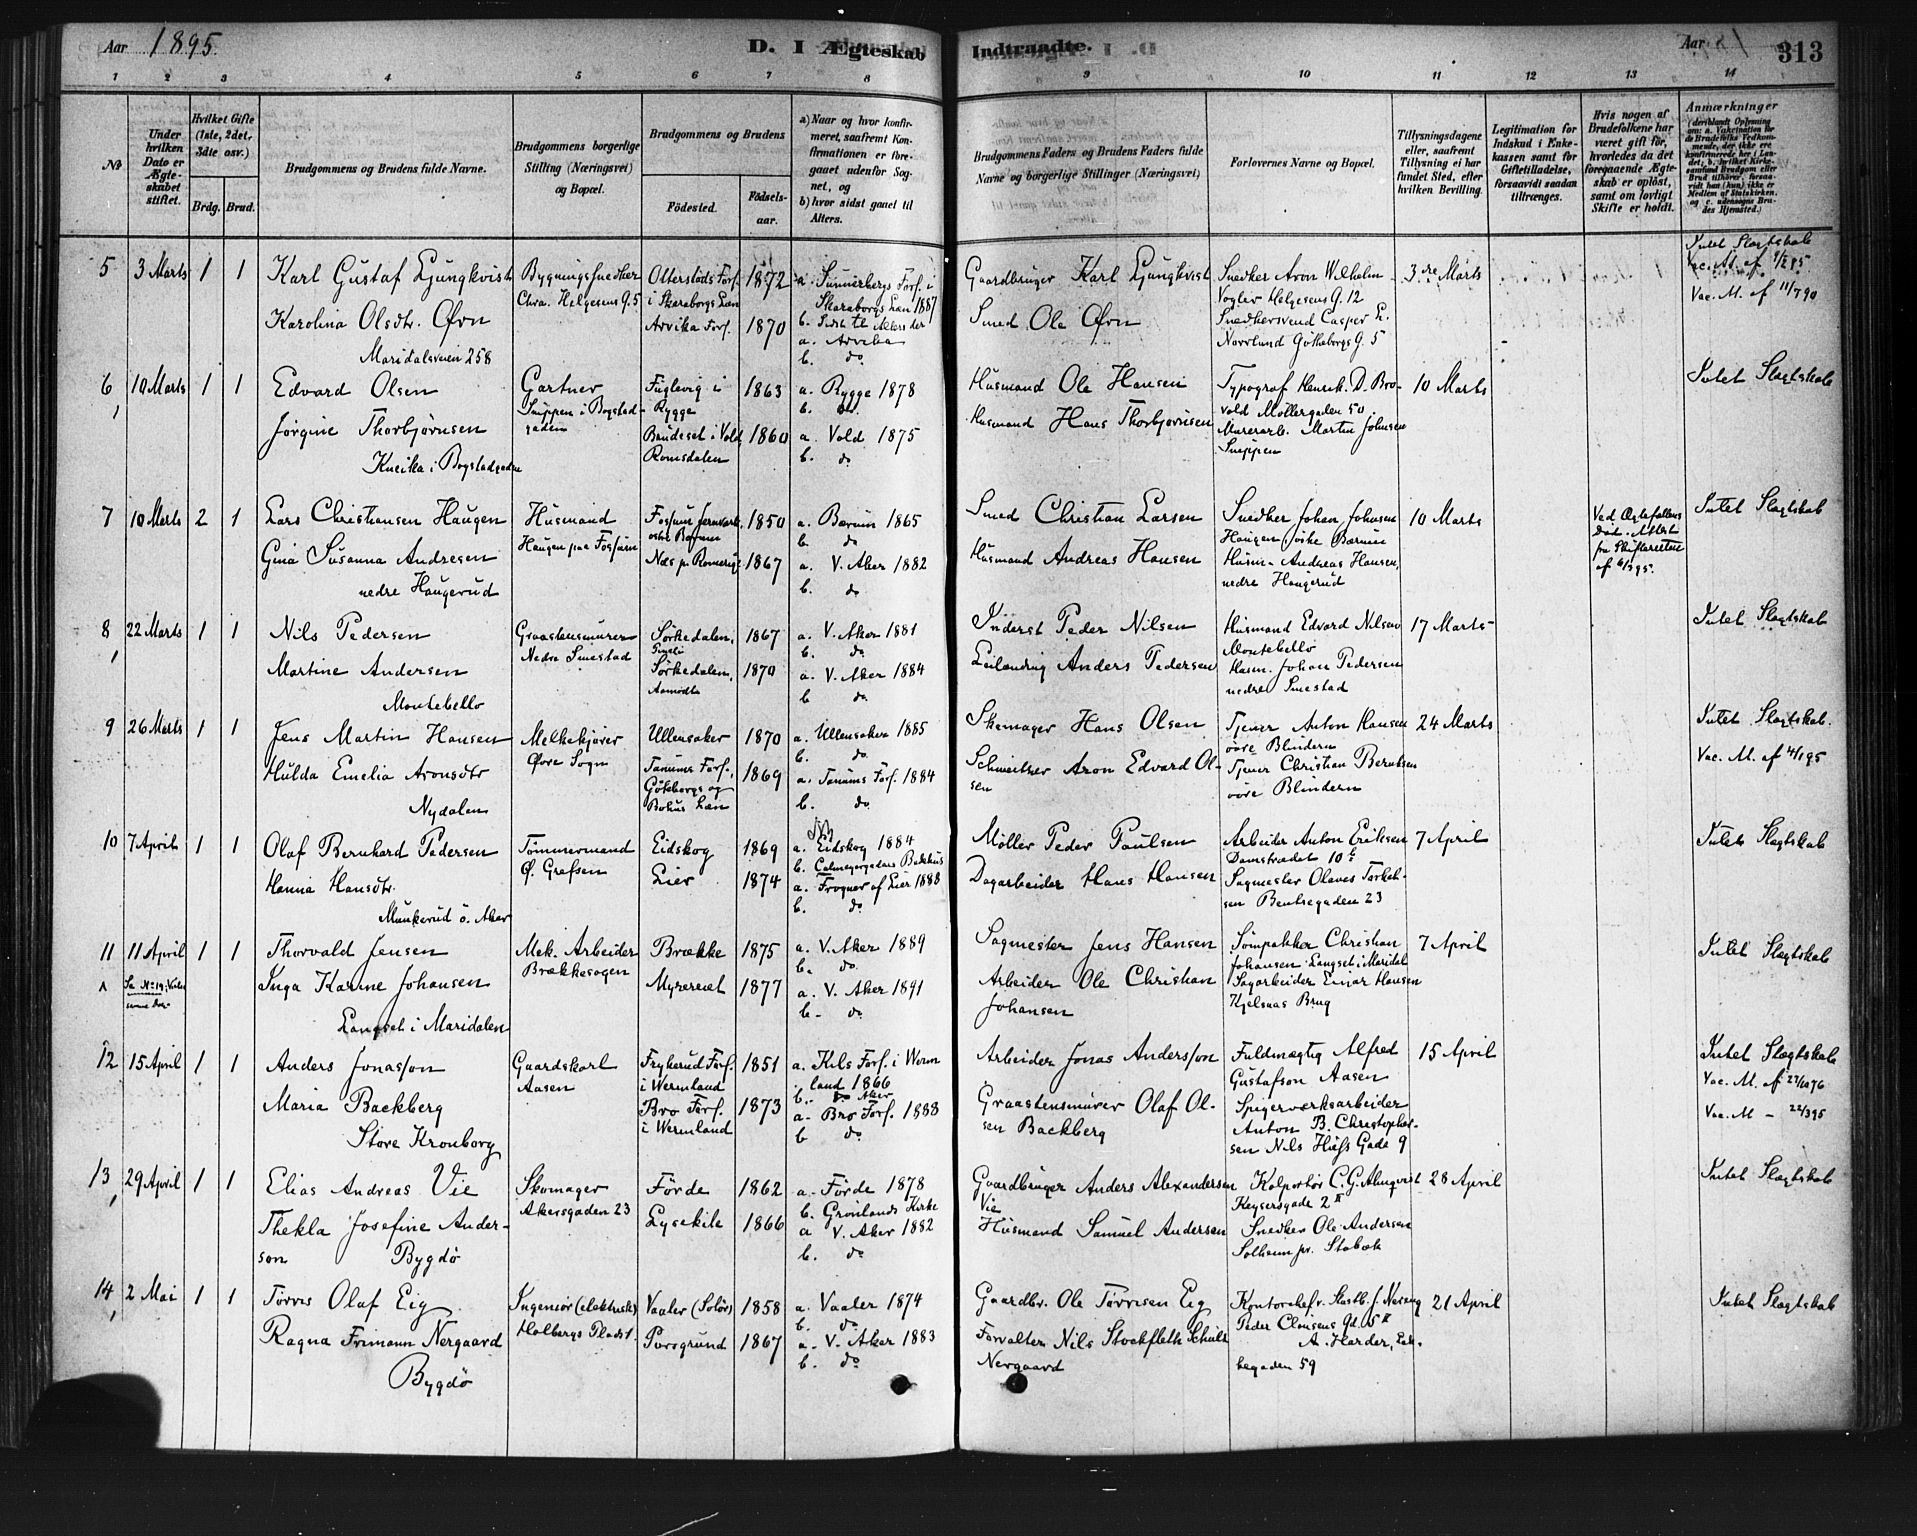 Aar 1895.
D. I Ægteskab Indtraadte.
Aar
313
1 2 3 4 5 6 7 8 9 10 11 12 13 14
№
Under hvilken Dato er Ægteskabet stiftet.
Hvilket Gifte (1ste, 2det, 3die osv.)
Brdg. Brud.
Brudgommens og Brudens fulde Navne.
Brudgommens borgerlige Stilling (Næringsvei) og Bopæl.
Brudgommens og Brudens
Fødested.
Fødsels-aar.
a) Naar og hvor konfirmeret, saafremt Konfirmationen er foregaaet udenfor Sognet, og
b) hvor sidst gaaet til Alters.
Brudgommens Faders og Brudens Faders fulde Navne og borgerlige Stillinger (Næringsvei)
Forlovernes Navne og Bopæl.
Tillysningsdagene eller, saafremt Tillysning ei har fundet Sted, efter hvilken Bevilling.
Legitimation for Indskud i Enkekassen samt for Giftetilladelse, forsaavidt saadan tiltrænges.
Hvis nogen af Brudefolkene har været gift før, hvorledes da det foregaaende Ægteskab er opløst, samt om lovligt Skifte er holdt.
Anmærkninger
5 3 Marts 1 1 Karl Gustaf Ljungkvist Bygningssnedker Otterstads Fors. 1872 a. Sunnerbergs Fors. i Gaardbruger Karl Ljungkvist Snedker Aron Wilhelm 3dre Marts Intet Slagtskab
Chra. Helgesens G. 5 i Skaraborgs Læn Skaraborgs Læn 1887 Vogler Helgesens G. 12 Vac. M. af
Karolina Olsdtr. Øvn Arvika Fors. 1870 b. Sidst til Alters der Smed Ole Øvn Snedkersvend Casper L. Vac. M. af 11/7 90
Maridalsveien 258 a. Arvika Norrlund Götheborgs G. 5
b. do
6 10 Marts 1 1 Edvard Olsen Gartner Fuglevig i 1863 a. Rygge 1878 Husmand Ole Hansen Typograf Henrik D. Bro- 10 Marts Intet Slagtskab
Snippen i Bogstad- Rygge b. do. vold Møllergaden 50.
gaden
Jørgine Thorbjørnsen Brudeset i Vold, 1860 a. Vold 1875 Husmand Hans Thorbjørnsen Murerarb. Martin Johnsen
Kneika i Bogstadgaden Romsdalen b. do Snippen
7 10 Marts 2 1 Lars Christiansen Haugen Husmand Fossum Jernværk, 1850 a. Bærum 1865 Smed Christian Larsen Snedker Johan Johnsen 10 Marts Ved Ægtefællens Intet Slagtskab
Haugen paa Fossum østre Bærum b. do Haugen, østre Bærum Død. Attest
Gina Susanna Andresen Næs p. Romerige 1867 a. V. Aker 1882 Husmand Andreas Hansen Husm. Andreas Hansen, fra Skifteretten
nedre Haugerud b. do nedre Haugerud af 6/3 95.
8 22 Marts 1 1 Nils Pedersen Graastensmurer Sørkedalen, 1867 a. V. Aker 1881 Inderst Peder Nilsen Husmand Edvard Nilsen 17 Marts Intet Slagtskab
Nedre Smestad b. do Montebello
Martine Andersen Sørkedalen, 1870 a. V. Aker 1884 Leilænding Anders Pedersen Husm. Johan Pedersen
Montebello Aamodt b do nedre Smestad
9 26 Marts 1 1 Jens Martin Hansen Melkekjører Ullensaker 1870 a. Ullensaker 1885 Skomager Hans Olsen Tjener Anton Hansen 24 Marts Intet Slagtskab.
Øvre Sogn b. do. øvre Blindern
Hulda Emelia Aronsdtr Tanums Fors., 1869 a. Tanums Fors. 1884 Schweitser Aron Edvard Ol- Tjener Christian Berntsen Vac. M. af 4/1 95
Nydalen Göteborgs og b. do sen øvre Blindern
Bohus Læn
10 7 April 1 1 Olaf Bernhard Pedersen Tømmermand Eidskog 1869 a. Eidskog 1884 Møller Peder Paulsen Arbeider Anton Eriksen 7 April Intet Slagtskab
Ø. Grefsen b. Calmeyergadens Bedehus Damstrædet 10 b
Hanna Hansdtr. Lier 1874 a. Frogner af Lier 1888 Dagarbeider Hans Hansen Sagmester Olaves Torkel-
Munkerud ø. Aker b. do. sen Bentsegaden 23
11 11 April 1 1 Thorvald Jensen Mek. Arbeider Brække 1875 a. V. Aker 1889 Sagmester Jens Hansen Tømpakker Christian 7 April Intet Slagtskab
Brækkesagen b. do Johansen Langset i Maridal
Inga Karine Johansen Myrereiet 1877 a. V. Aker 1891 Arbeider Ole Christian Sagarbeider Einar Hansen
Langset i Maridalen b. do Johansen Kjelsaas Brug
12 15 April 1 1 Anders Jonasson Gaardskarl Frykerud Fors. 1851 a. Kils Fors. i Werm Arbeider Jonas Andersson Fuldmægtig Alfred 15 April Intet Slagtskab
Aasen i Wermland land 1866 Gustafson Aasen Vac. M. af 27/10 76
b. Aker
Maria Backberg Bro Fors. 1873 a. Bro Fors. 1888 Graastensmurer Olaf Ol- Spigerværksarbeider Vac. M – 22/3 95
Store Kronborg i Wermland b do sen Backberg Anton B. Christopher-
sen Nils Huss Gade 9
13 29 April 1 1 Elias Andreas Vie Skomager Førde 1862 a. Førde 1878 Gaardbruger Anders Alexandersen Kolportør C. G. Almqvist 28 April Intet Slagtskab
Akersgaden 23 b. Grønlands Kirke Vie Keysersgade 2 II
Thekla Josefine Ander- Lysekile 1866 a V. Aker 1882 Husmand Samuel Andersen Snedker Ole Andersen
son Bygdø b. do Solheim pr. Stabæk
14 2 Mai 1 1 Torris Olaf Eig Ingeniør (elektrisk) Vaaler (Solør) 1858 a. Vaaler 1874 Gaardbr. Ole Torrisen Eig Kontorchef v. 21 April Intet Slagtskab
Holbergs Plads 1. b. do Peder Clausens Gd. 5 II
Ragna Frimann Nergaard Porsgrund 1867 a. V. Aker 1883 Forvalter Nils Stockfleth Schultz A. Harder,
Bygdø b. do Nergaard gaden 59